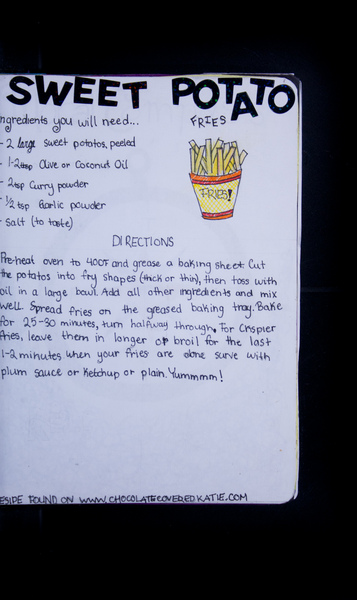 SWEET POTATO
FRIES
ngredients you will need...
- 2 large sweet pototos, peeled
- 1-2tbsp Olive or Coconut Oil
- 2tsp Curry powder
- 1/2 tsp Garlic powder
- Salt (to taste)
FRIES!
DIRECTIONS
Pre-heat oven to 400F and grease a baking sheet. Cut
the potatos into fry shapes (thick or thin), then toss with
oil in a large bowl. Add all other ingredients and mix
well. Spread fries on the greased baking tray. Bake
for 25-30 minutes, turn halfway through. For Crispier
fries, leave them in longer or broil for the last
1-2 minutes when your fries are done surve with
plum sauce or Ketchup or plain. Yummmm!
ESIPE FOUND ON WWW.CHOCOLATECOVEREDKATIE.COM